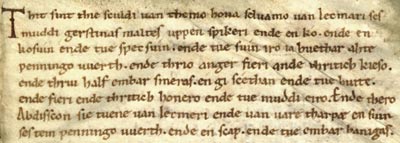 Thit sint thie sculdi van themo hova seluamo van lecmari ses
muddi gerstinas maltes uppen spikeri ende en ko. ende en
kosuin ende tue specsuin. ende fiuin iro ia huethar ahte
penningo wuerth. ende thrio anger fieri ende thritich kieso.
ende thru half embar smeras. en gi scethan ende tue hutte.
ende fieri ende thritich honero ende tue muddi eiro. Ende thero
Abdisscon sie tuene van lecmeri ende van vare tharpa en suin
sestein penningo wuerth. ende en scap. ende tue embar hanigas.